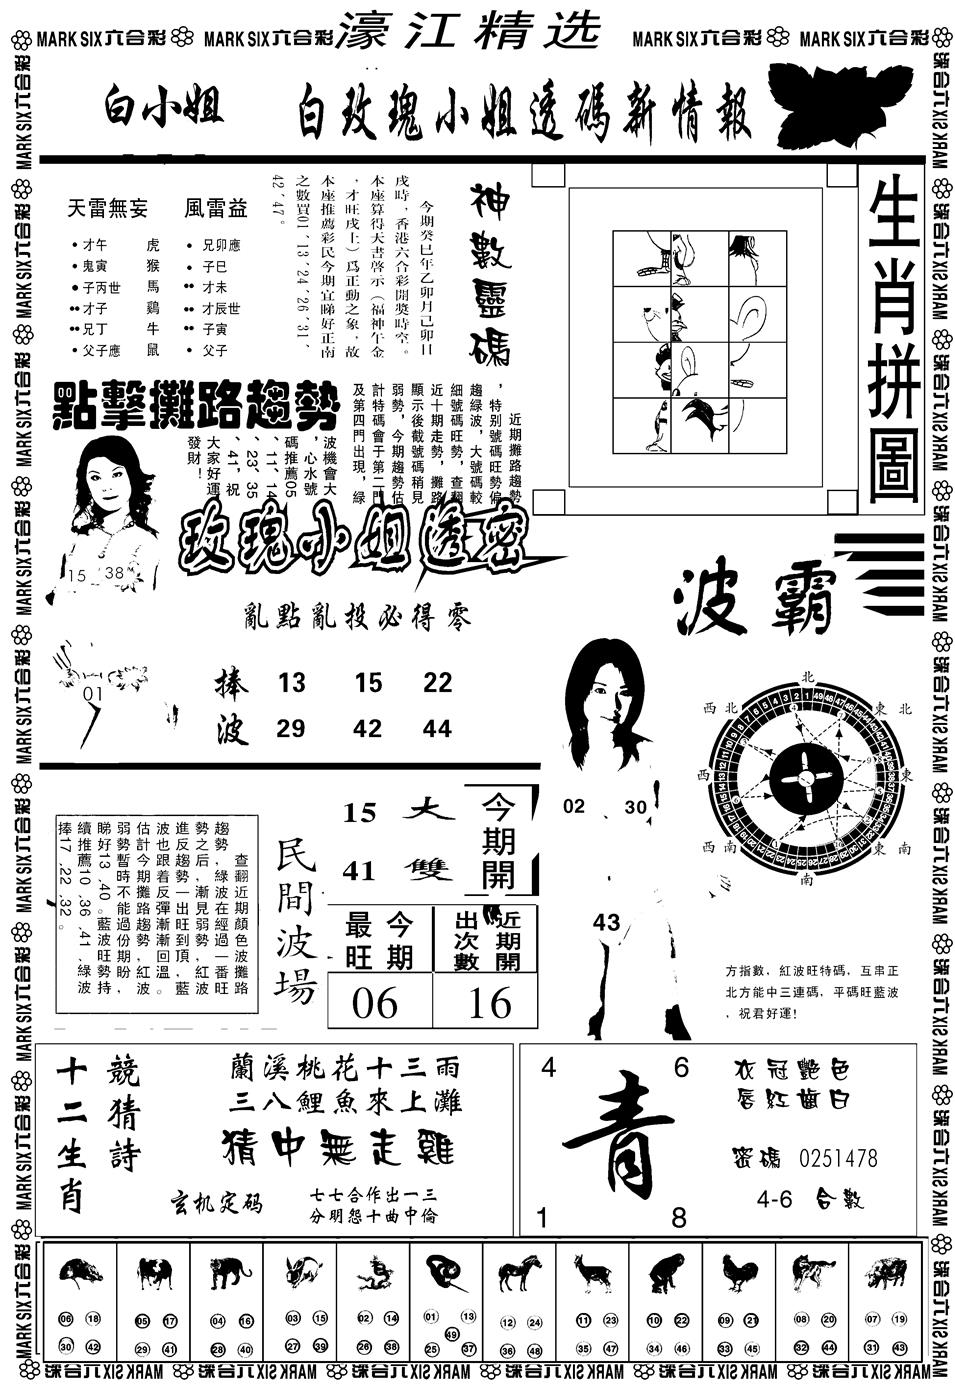 MARK SIX 六合彩 MARK SIX 六合彩 濠江精选 MARK SIX 六合彩 MARK SIX 六合彩
白小姐 白玫瑰小姐透碼新情報
天雷無妄 風雷益
才午 虎 兄卯應
鬼寅 猴 子巳
子丙世 馬 才未
才子 鷄 才辰世
兄丁 牛 子寅
父子應 鼠 父子
神數靈碼
今期癸巳年乙卯月己卯日
戌時,香港六合彩開獎時空。
本座算得天書啓示(福神午金
,才旺戌上)爲正動之象,故
本座推薦彩民今期宜睇好正南
之數買01、13、24、26、31、
42、47。
生肖拼圖
點擊攤路趨勢
近期攤路趨勢
,特別號碼旺勢偏
趨綠波,大號碼較
細號碼旺勢,查翻
近十期走勢,攤路
顯示後截號碼稍見
弱勢,今期趨勢估
計特碼會于第二門
及第四門出現,綠
波機會大
,心水號
碼推薦05
、11、14
、23、35
、41,祝
大家好運
發財!
15 38
01
玫瑰小姐透密
亂點亂投必得零
捧 13 15 22
波 29 42 44
波霸
02 30
43
北
西北 東北
西 東
西南 東南
南
方指數,紅波旺特碼,互串正
北方能中三連碼,平碼旺藍波
,祝君好運!
查翻近期顏色波攤路
趨勢,綠波在經過一番旺
勢之后,漸見弱勢,紅波
進反趨勢一出旺到頂,藍
波也跟着反彈漸漸回溫。
估計今期攤路趨勢紅波
弱勢暫時不能過份期盼,
睇好13、40。藍波旺勢持
續推薦10、36、41、綠波
捧17、22、32。
民間波場
15 大 今期開
41 雙
今期最旺 近期開出次數
06 16
競猜詩
十二生肖
蘭溪桃花十三雨
三八鯉魚來上灘
猜中無走雞
玄机定码
七七合作出一三
分明怨十曲中倫
4 6
青
1 8
衣冠艷色
唇紅齒白
密碼 0251478
4-6 合數
06 18 05 17 04 16 03 15 02 14 01 13 12 24 11 23 10 22 09 21 08 20 07 19
49
30 42 29 41 28 40 27 39 26 38 25 37 36 48 35 47 34 46 33 45 32 44 31 43
MARK SIX 六合彩 MARK SIX 六合彩 MARK SIX 六合彩 MARK SIX 六合彩 MARK SIX 六合彩 MARK SIX 六合彩